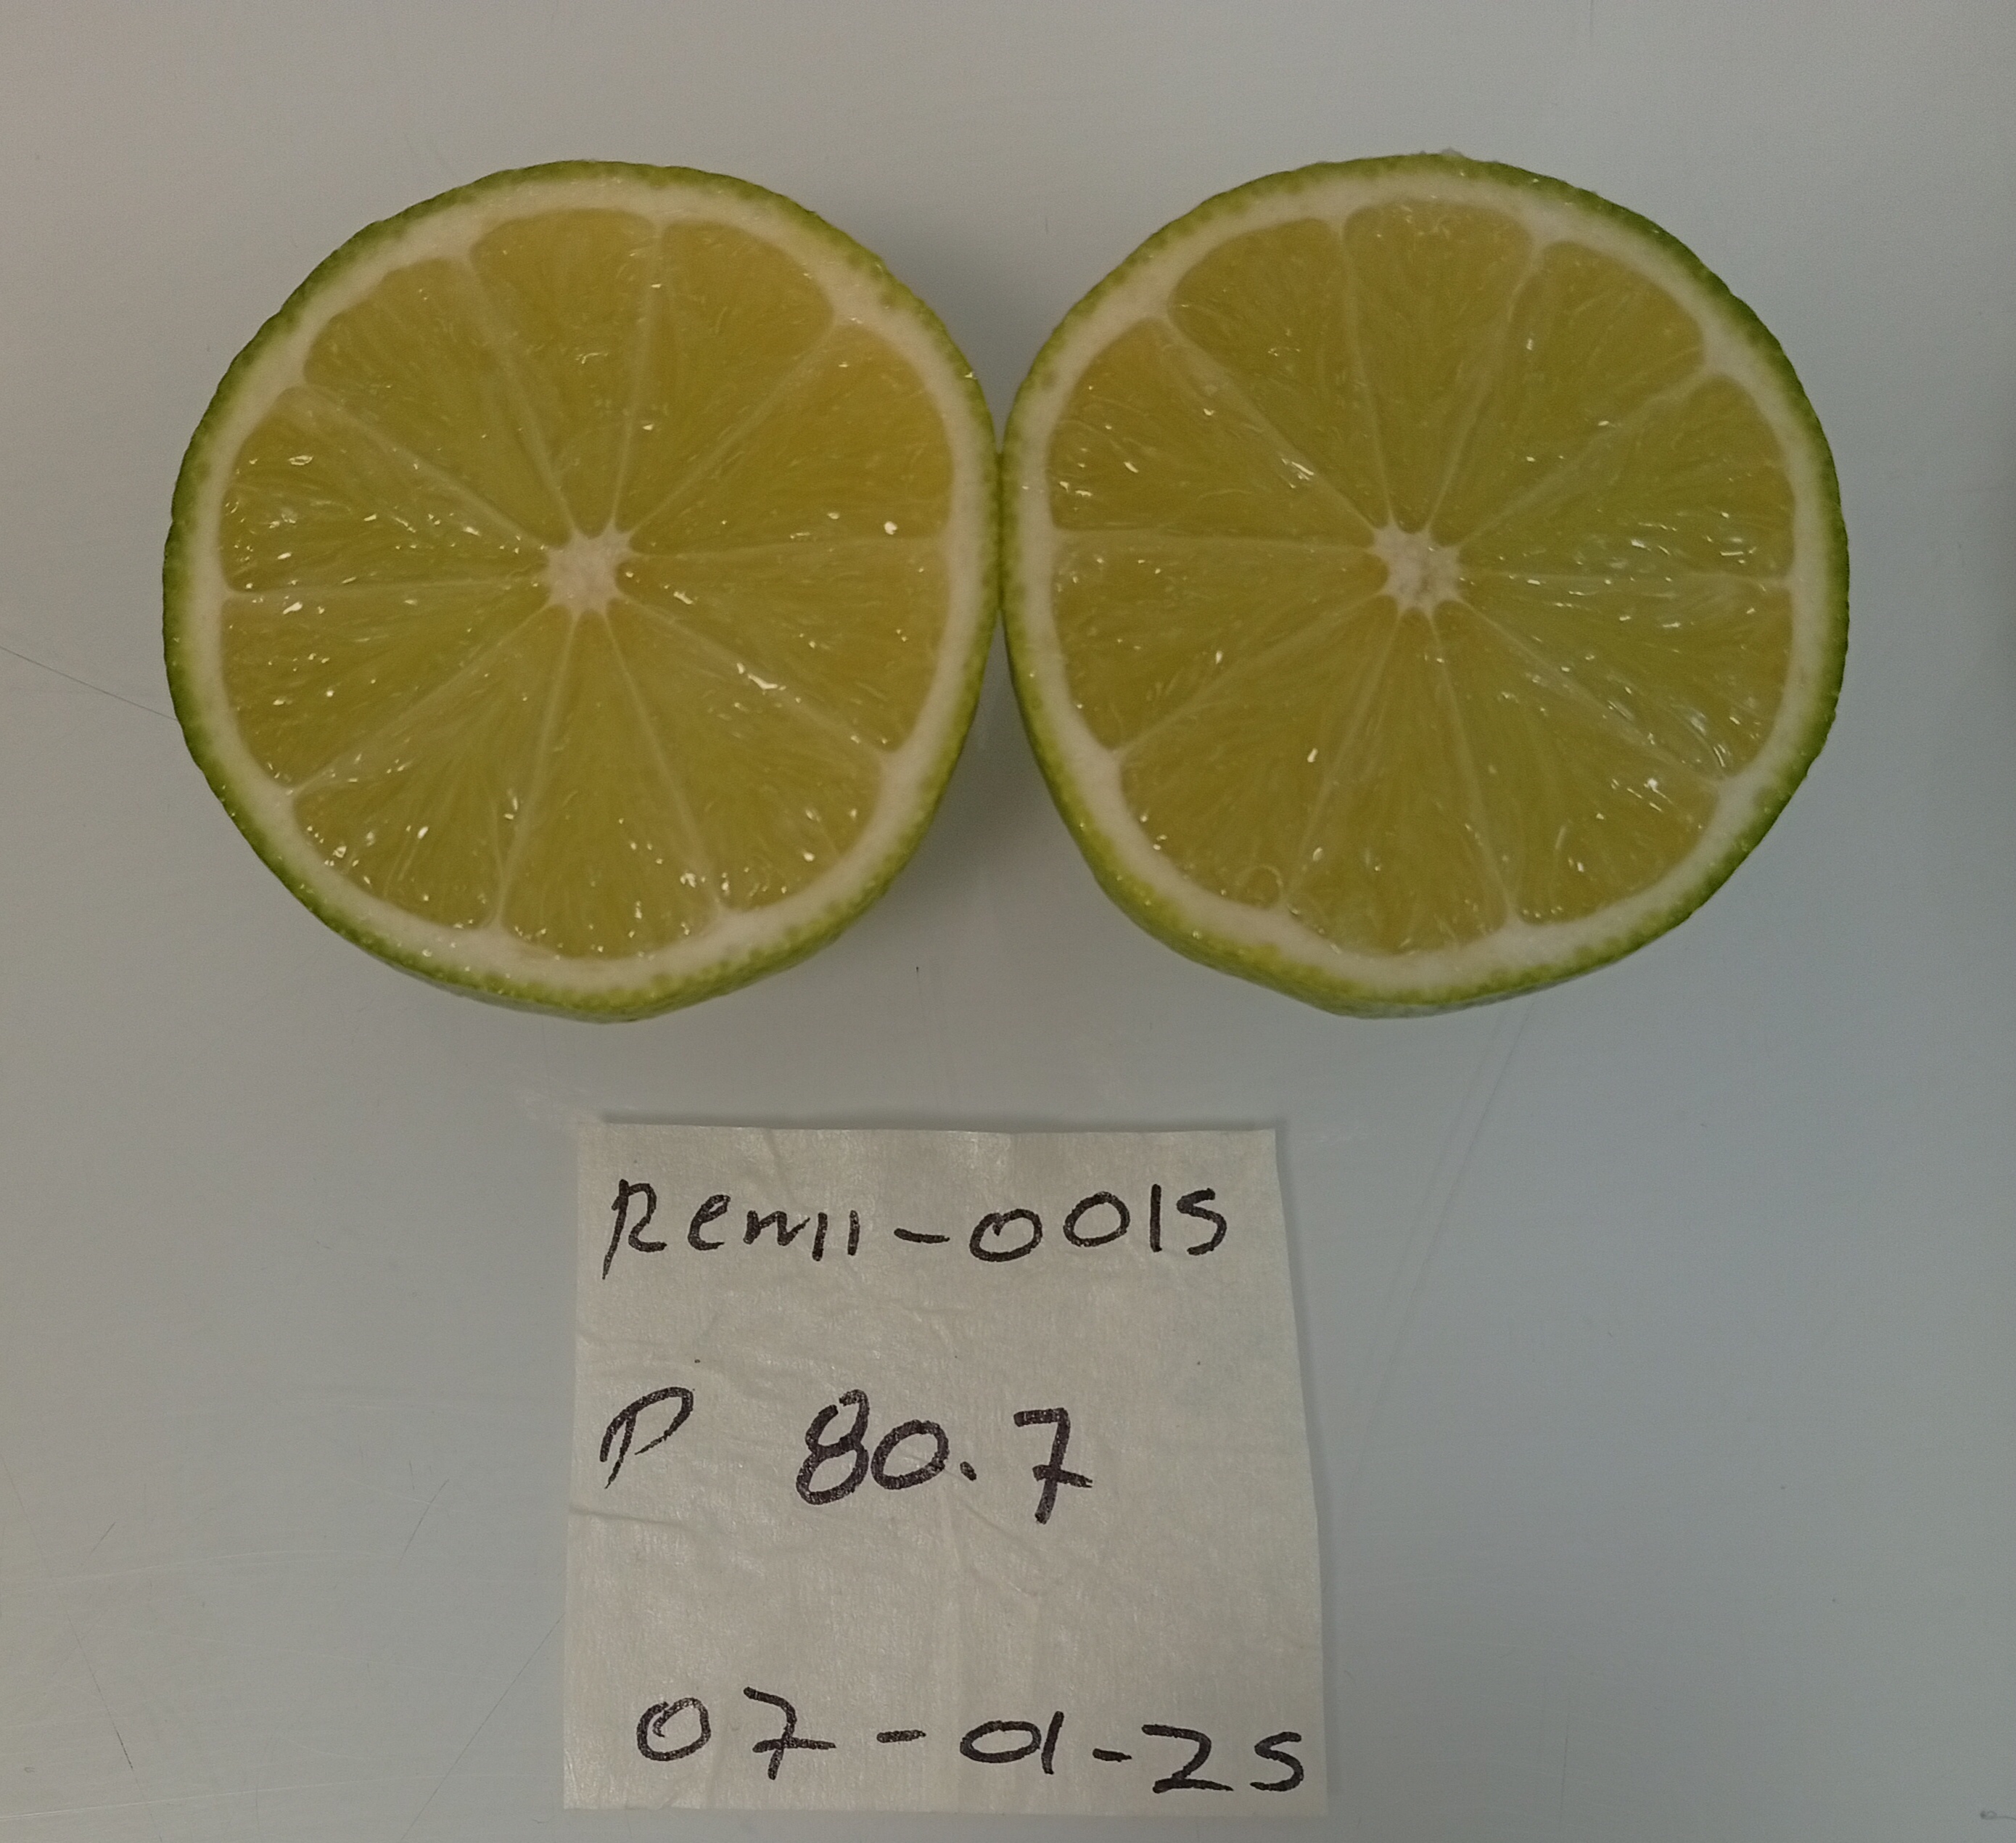 Remii-0015
P 80.7
07-01-25